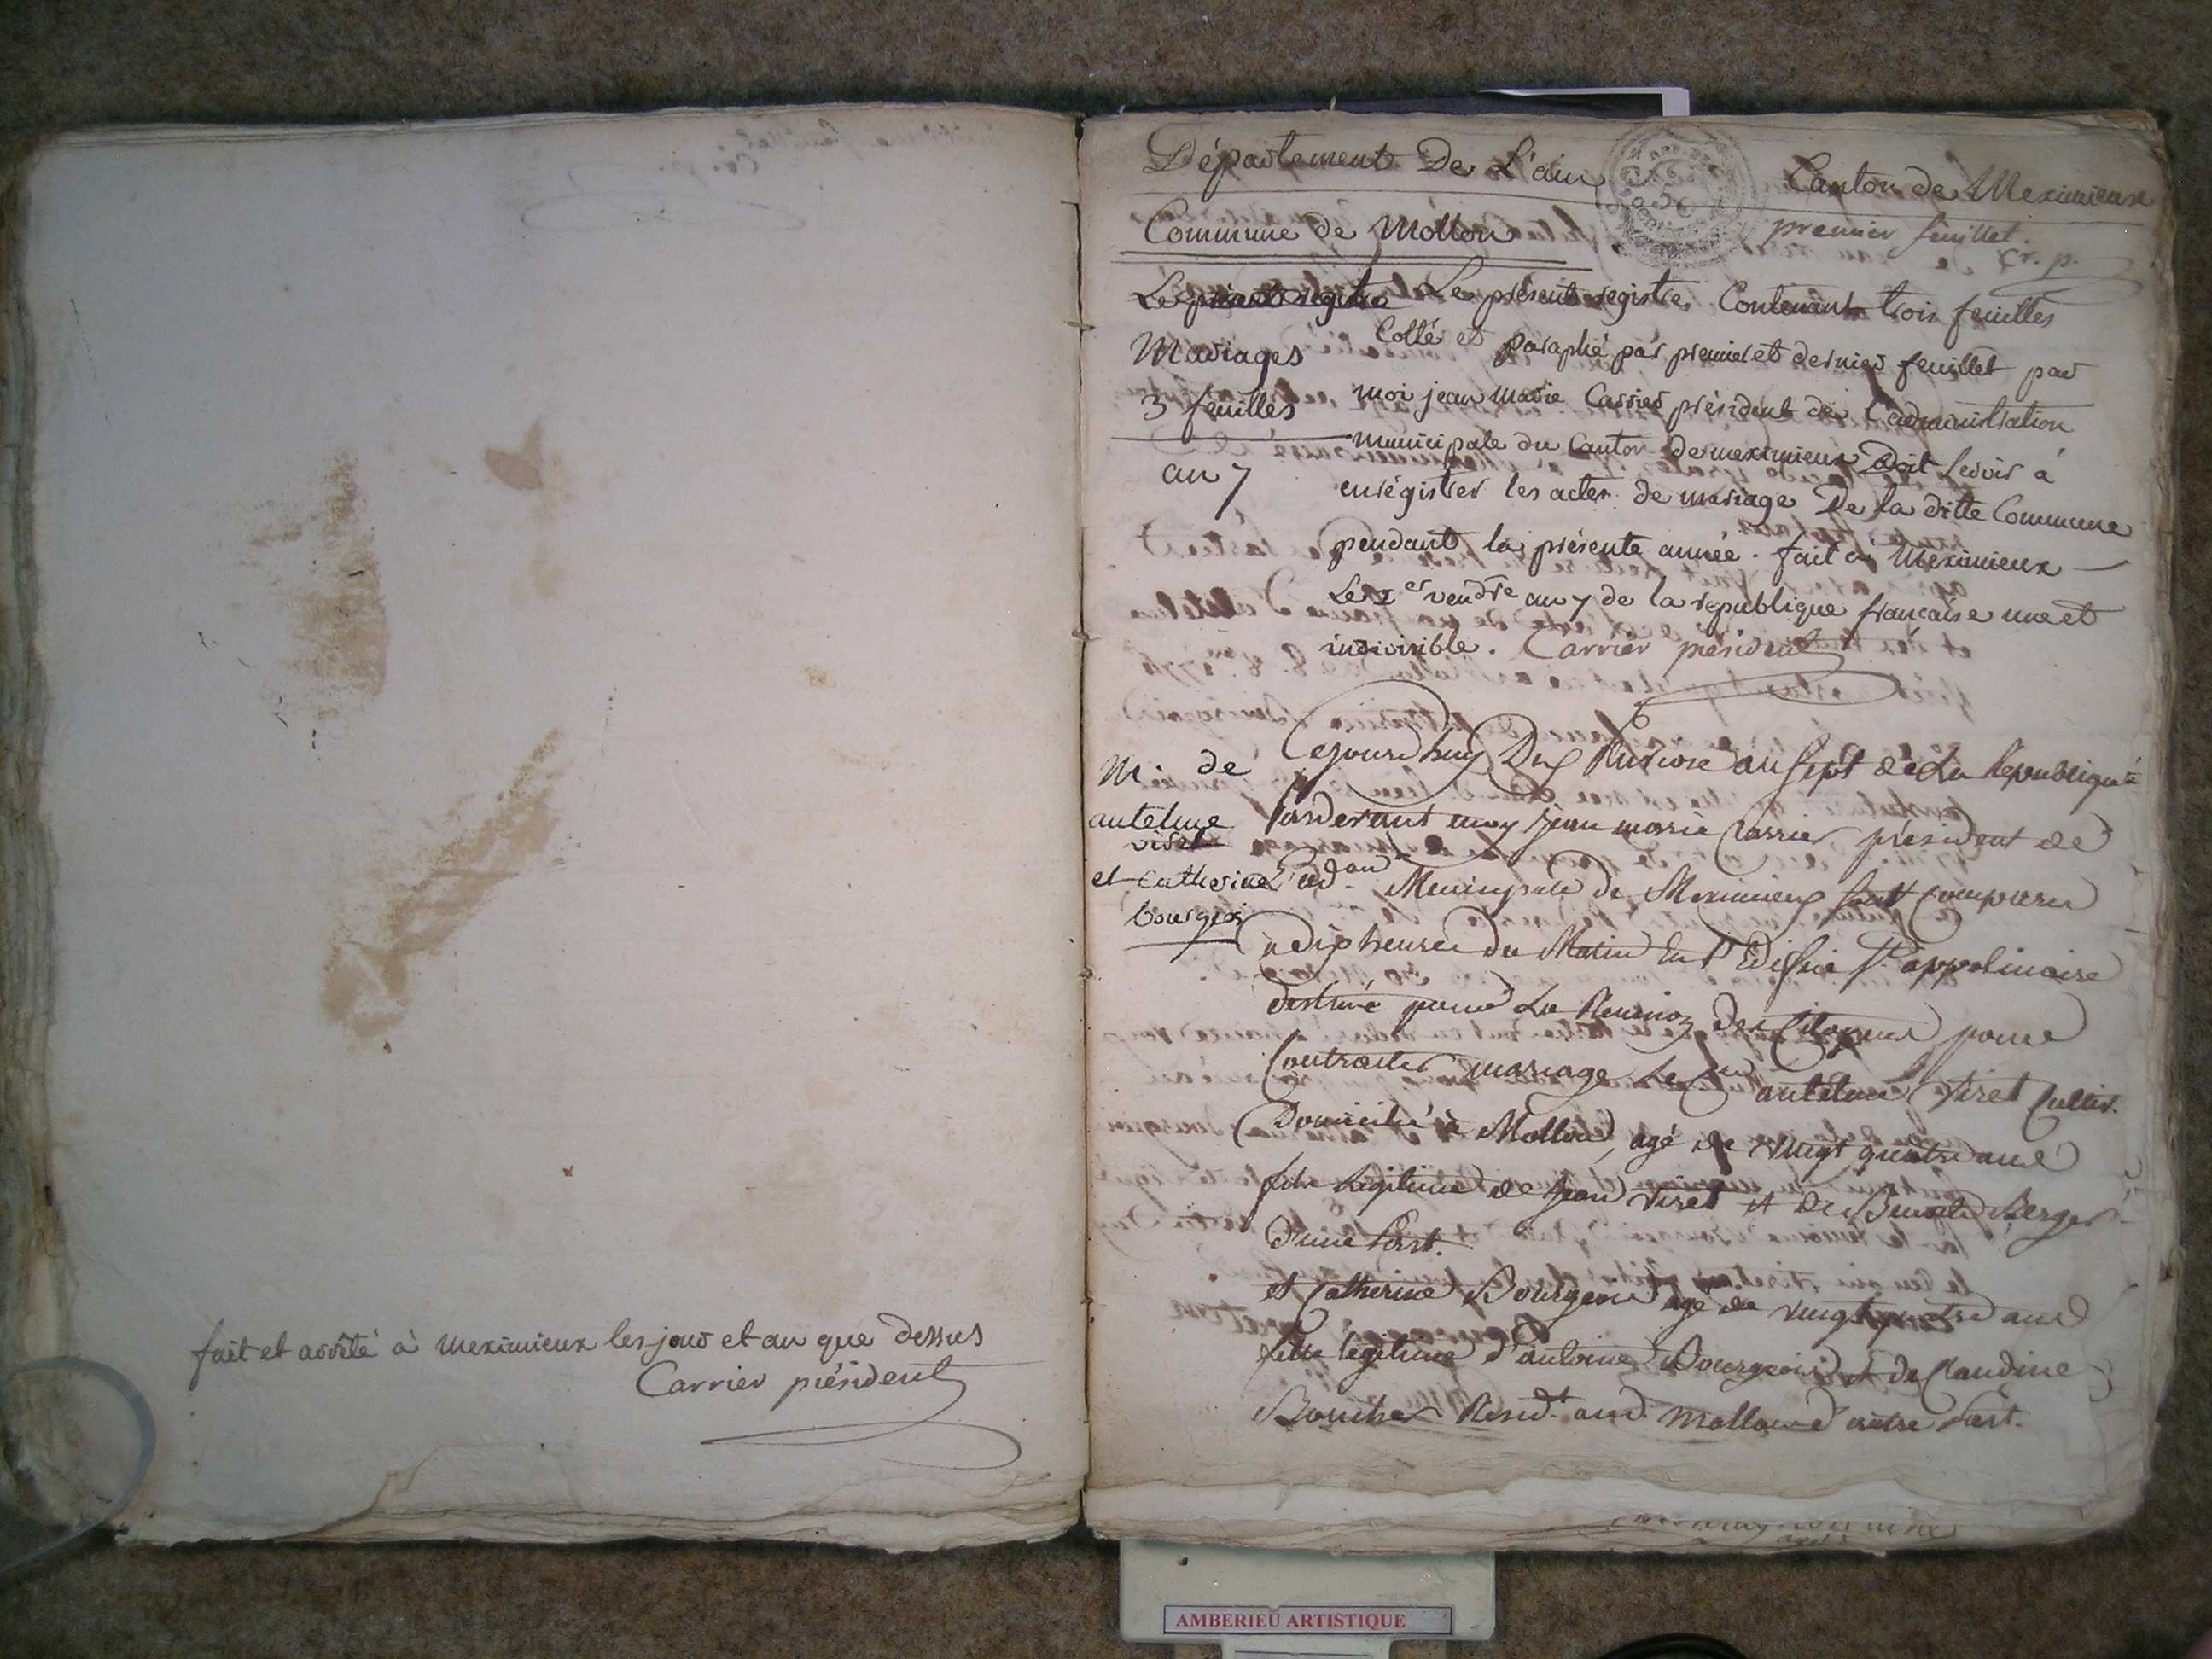 fait et arrêté à meximieux les jour et an que dessus
Carrier président
Département De L'ain
Canton de Meximieux
Commune de Mollon
premier feuillet.
Cr. p.
Le présent registre Le présent registre Contenant trois feuilles
Mariages
Cotté et paraphé par premier et dernier feuillet par
3 feuilles
moi jean marie Carrier président de l'administration
municipale du Canton de meximieux Doit servir à
an 7
enrégistrer les actes de mariage De la ditte Commune
pendant la présente année. fait à Meximieux
Le 1er vendre an 7 de la republique francaise une et
indivisible. Carrier président
Cejourdhuy Dix Nivose an sept de La Republique
M. de
antelme
viret
et catherine
bourgeois
pardevant moy jean marie Carrier président de
L'adon Municipale de Meximieux sont comparu
à dix heures du Matin En l'Edifice St appolinaire
destiné pour La Reunion des Citoyens pour
Contracter mariage le Cen antelme Viret Cultiv.
Domicilié à Mollon, agé de vingt quatre ans
fils legitime de Jean Viret et de Benoite Berger
d'une part.
et Catherine Bourgeois agé de vingt quatre ans
fille legitime d'antoine Bourgeois et de Claudine
Bouchet Residt aud. Mollon d'autre part.
AMBERIEU ARTISTIQUE